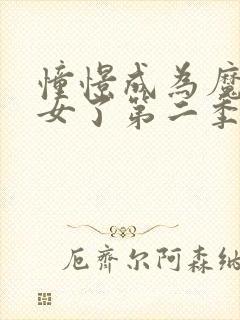 憧憬成為魔
女了第二季
厄齊尔阿森納